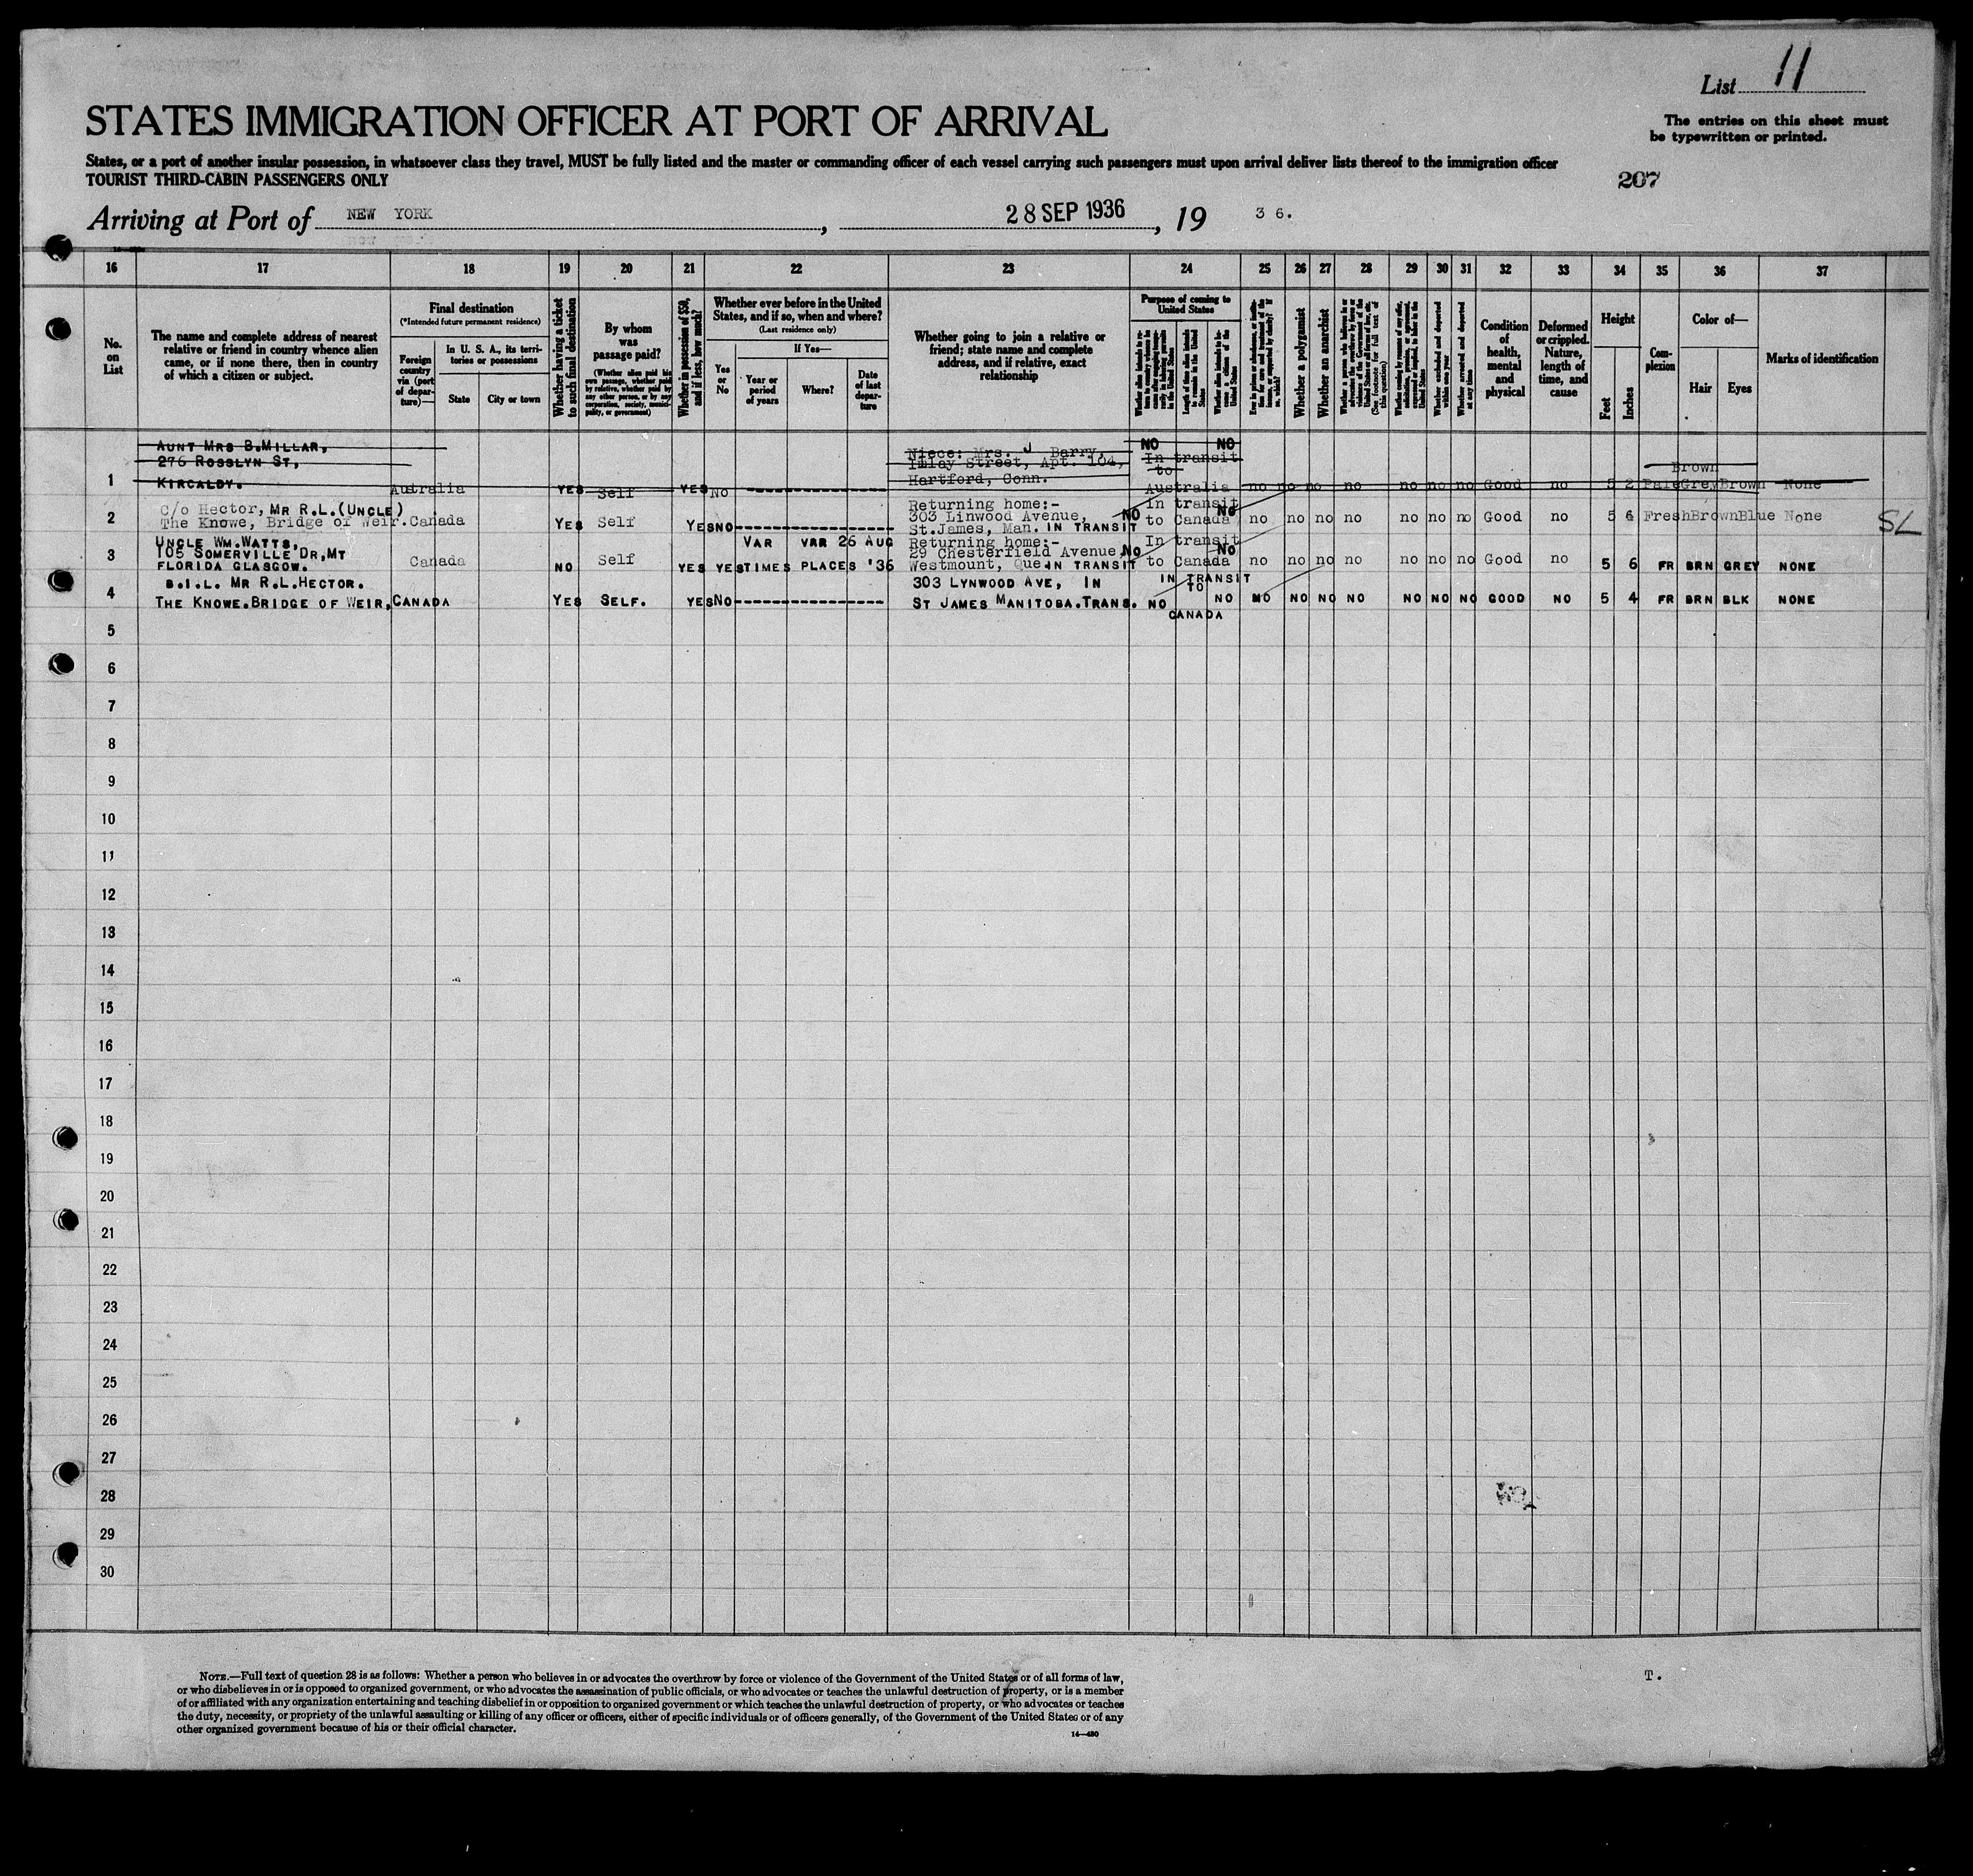 List 11
STATES IMMIGRATION OFFICER AT PORT OF ARRIVAL
The entries on this sheet must
be typewritten or printed.
States, or a port of another insular possession, in whatsoever class they travel, MUST be fully listed and the master or commanding officer of each vessel carrying such passengers must upon arrival deliver lists thereof to the immigration officer
TOURIST THIRD-CABIN PASSENGERS ONLY
207
Arriving at Port of NEW YORK, 28 SEP 1936, 19 3 6.
16 17 18 19 20 21 22 23 24 25 26 27 28 29 30 31 32 33 34 35 36 37
No.
on
List
The name and complete address of nearest
relative or friend in country whence alien
came, or if none there, then in country
of which a citizen or subject.
Final destination
(*Intended future permanent residence)
Foreign
country
via (port
of depar-
ture)—
In U. S. A., its terri-
tories or possessions
State
City or town
Whether having a ticket
to such final destination
By whom
was
passage paid?
(Whether alien paid his
own passage, whether paid
by relative, whether paid by
any other person, or by any
corporation, society, munici-
pality, or government)
Whether in possession of $50,
and if less, how much?
Whether ever before in the United
States, and if so, when and where?
(Last residence only)
Yes
or
No
If Yes—
Year or
period
of years
Where?
Date
of last
depar-
ture
Whether going to join a relative or
friend; state name and complete
address, and if relative, exact
relationship
Purpose of coming to
United States
Whether a polygamist
Whether an anarchist
Whether excluded and deported
within one year
Whether arrested and deported
at any time
Condition
of
health,
mental
and
physical
Deformed
or crippled.
Nature,
length of
time, and
cause
Height
Feet
Inches
Com-
plexion
Color of—
Hair
Eyes
Marks of identification
AUNT MRS B.MILLAR,
276 ROSSLYN ST,
KIRCALDY.
1 Australia YES Self YES No
Niece: Mrs. J Barry,
Imlay Street, Apt. 104,
Hartford, Conn.
NO NO
In transit
to
Australia no no no no no no no Good no 5 2 Pale Grey Brown None
Brown
2 c/o Hector, MR R.L.(UNCLE)
The Knowe, Bridge of Weir. Canada YES Self YES NO
Returning home:-
303 Linwood Avenue,
St.James, Man. IN TRANSIT
NO In transit NO
to Canada no no no no no no no Good no 5 6 Fresh Brown Blue None
SL
3 UNCLE WM.WATTS,
105 SOMERVILLE DR,MT
FLORIDA GLASGOW.
Canada NO Self YES YES
VAR VAR 26 AUG
TIMES PLACES '36
Returning home:-
29 Chesterfield Avenue,
Westmount, Que. IN TRANSIT
NO In transit NO
to Canada no no no no no no no Good no 5 6 FR BRN GREY NONE
4 B.I.L. MR R.L.HECTOR.
THE KNOWE.BRIDGE OF WEIR, CANADA YES SELF. YES NO
303 LYNWOOD AVE, IN
ST JAMES MANITOBA.TRANS.
NO IN TRANSIT
TO
CANADA
NO NO NO NO NO NO NO NO GOOD NO 5 4 FR BRN BLK NONE
5
6
7
8
9
10
11
12
13
14
15
16
17
18
19
20
21
22
23
24
25
26
27
28
29
30
NOTE.—Full text of question 28 is as follows: Whether a person who believes in or advocates the overthrow by force or violence of the Government of the United States or of all forms of law,
or who disbelieves in or is opposed to organized government, or who advocates the assassination of public officials, or who advocates or teaches the unlawful destruction of property, or is a member
of or affiliated with any organization entertaining and teaching disbelief in or opposition to organized government or which teaches the unlawful destruction of property, or who advocates or teaches
the duty, necessity, or propriety of the unlawful assaulting or killing of any officer or officers, either of specific individuals or of officers generally, of the Government of the United States or of any
other organized government because of his or their official character.
14—480
T.